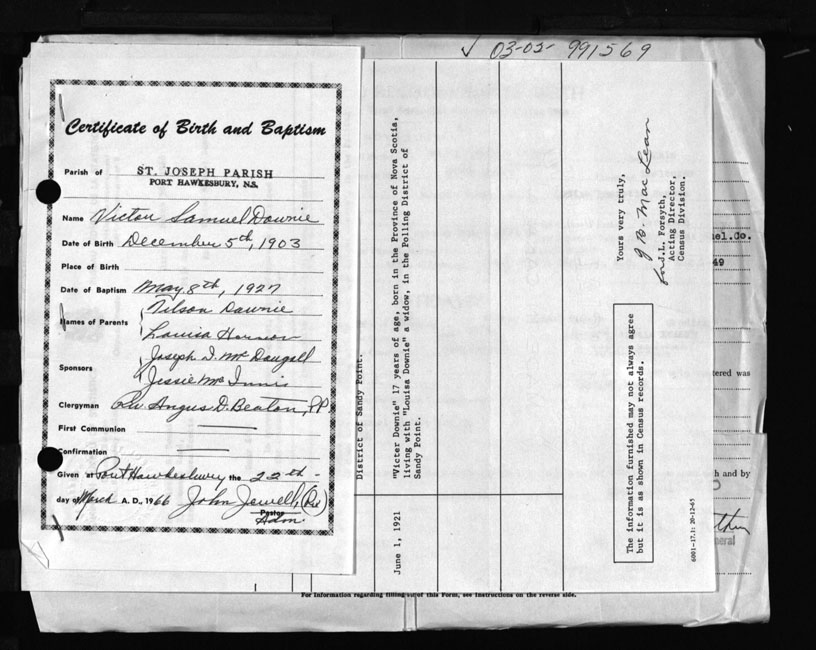 03-02- 991569
Certificate of Birth and Baptism
Parish of ST. JOSEPH PARISH
PORT HAWKESBURY, N.S.
Name Victor Samuel Downie
Date of Birth December 5th, 1903
Place of Birth
Date of Baptism May 8th, 1927
Names of Parents
Wilson Downie
Louisa
Sponsors
Joseph I. McDougall
Jessie McInnis
Clergyman Rev Angus D. Beaton, PP
First Communion
Confirmation
Given at Port Hawkesbury the 22nd
day of March A. D., 1966 John Jewell, (Rev)
Pastor
Adm.
District of Sandy Point.
June 1, 1921
"Victer Downie" 17 years of age, born in the Province of Nova Scotia,
living with "Louisa Downie" a widow, in the Polling District of
Sandy Point.
Yours very truly,
J B. MacLean
for J.L. Forsyth,
Acting Director,
Census Division.
The information furnished may not always agree
but it is as shown in Census records.
6001-17.1: 20-12-65
el.Co.
49
tered was
h and by
eral
For Information regarding filling out of this Form, see Instructions on the reverse side.